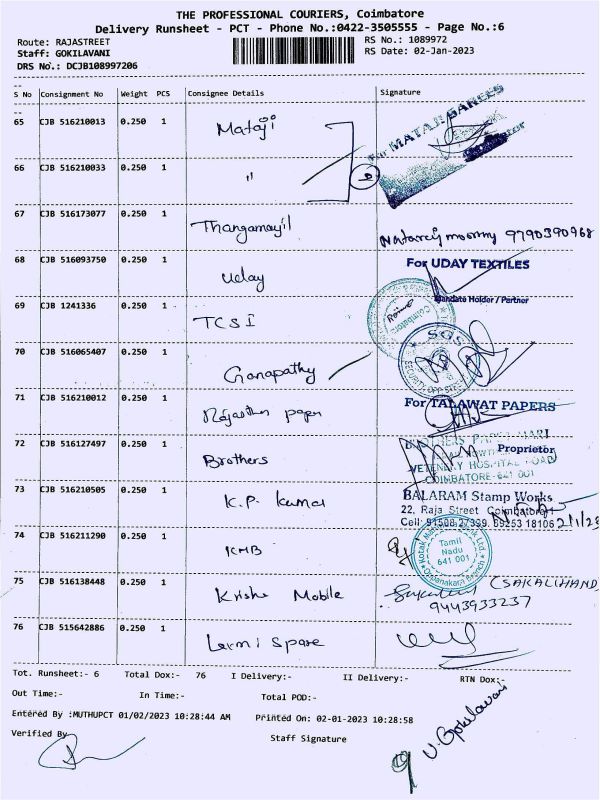 THE PROFESSIONAL COURIERS, Coimbatore
Delivery Runsheet - PCT - Phone No.:0422-3505555 - Page No.:6
Route: RAJASTREET
RS No.: 1089972
Staff: GOKILAVANI
RS Date: 02-Jan-2023
DRS No.: DCJB108997206
S No Consignment No Weight PCS Consignee Details Signature
65 CJB 516210013 0.250 1 Mataji
For MATAJI SAREES
66 CJB 516210033 0.250 1 "
67 CJB 516173077 0.250 1 Thangamayil
9790390968
68 CJB 516093750 0.250 1 Uday
For UDAY TEXTILES
Mandate Holder / Partner
69 CJB 1241336 0.250 1 TCSI
Coimbatore
70 CJB 516065407 0.250 1 Ganapathy
SGS
71 CJB 516210012 0.250 1 Rajasthan paper
For TALAWAT PAPERS
72 CJB 516127497 0.250 1 Brothers
Proprietor
COIMBATORE-641 001
73 CJB 516210505 0.250 1 K.P. Kumar
BALARAM Stamp Works
22, Raja Street Coimbatore
Cell: 91508 27339, 89253 18106 2/1/23
74 CJB 516211290 0.250 1 KMB
Tamil
Nadu
641 001
75 CJB 516138448 0.250 1 Krishe Mobile
(SAKALCHAND)
9443933237
76 CJB 515642886 0.250 1 Laxmi Spare
Tot. Runsheet:- 6 Total Dox:- 76 I Delivery:- II Delivery:- RTN Dox:-
Out Time:- In Time:- Total POD:-
Entered By :MUTHUPCT 01/02/2023 10:28:44 AM Printed On: 02-01-2023 10:28:58
Verified By
Staff Signature
V. Gokilavani